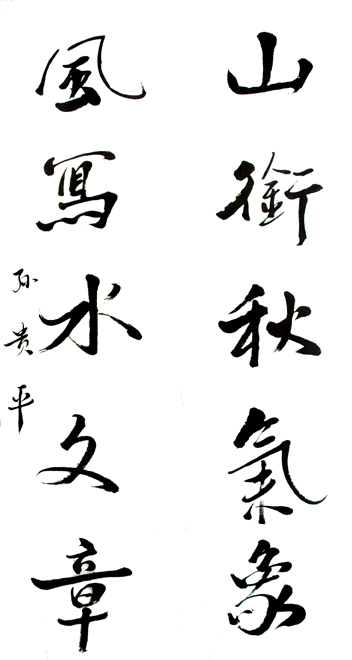 山銜秋氣象
風寫水文章
孙贵平